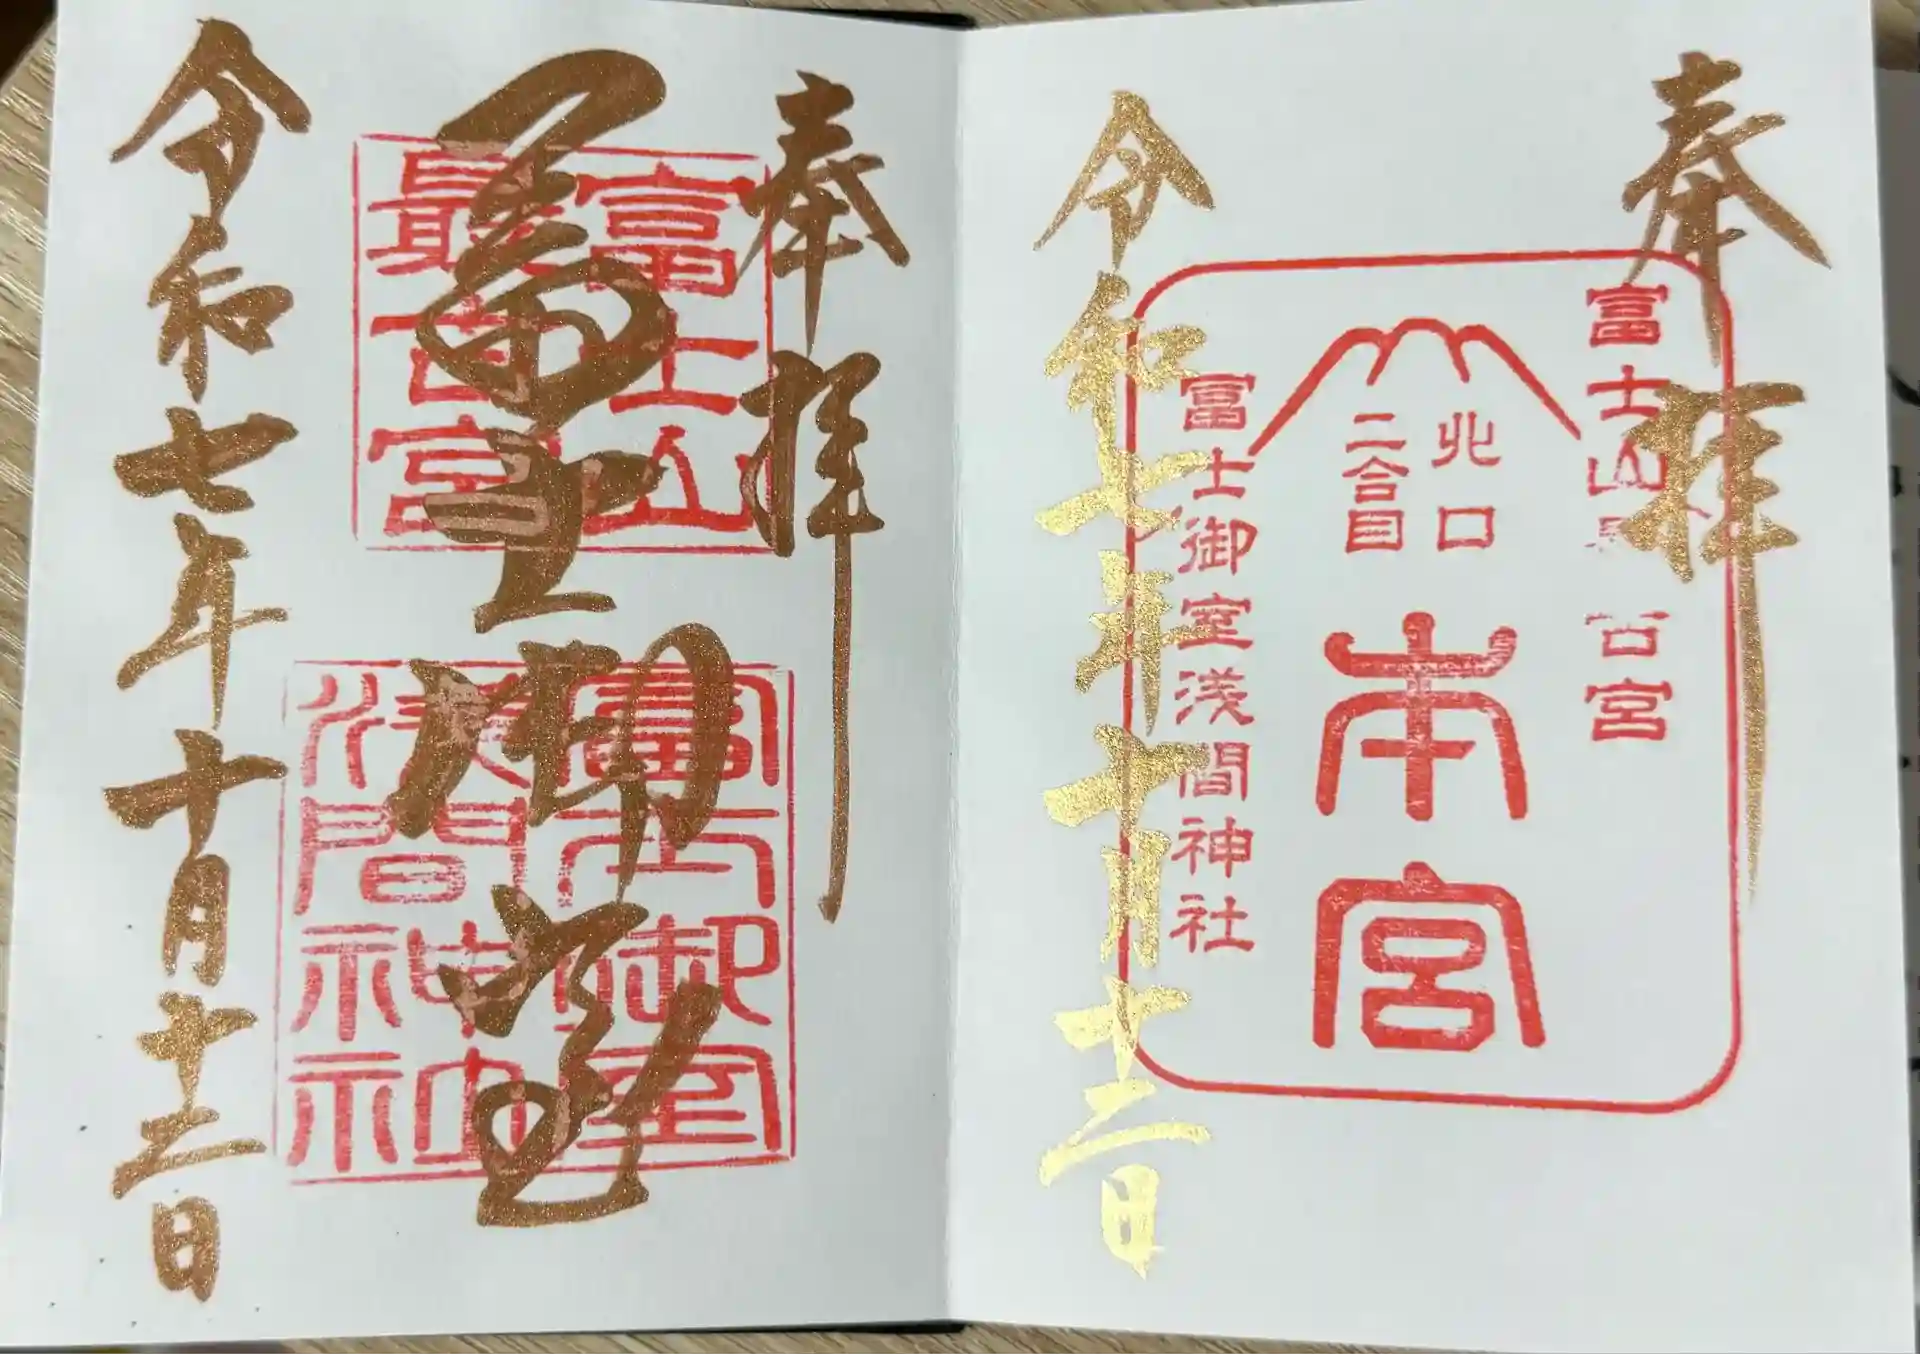 奉拝
富士山最古宮
北口
二合目
本宮
富士御室浅間神社
令和七年十月十二日
奉拝
富士山
最古宮
冨士御室
富士御室
浅間神社
令和七年十月十二日